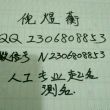 倪煜蘅
QQ 2306808853
微信号 N2306808853
人工专业起名
测名